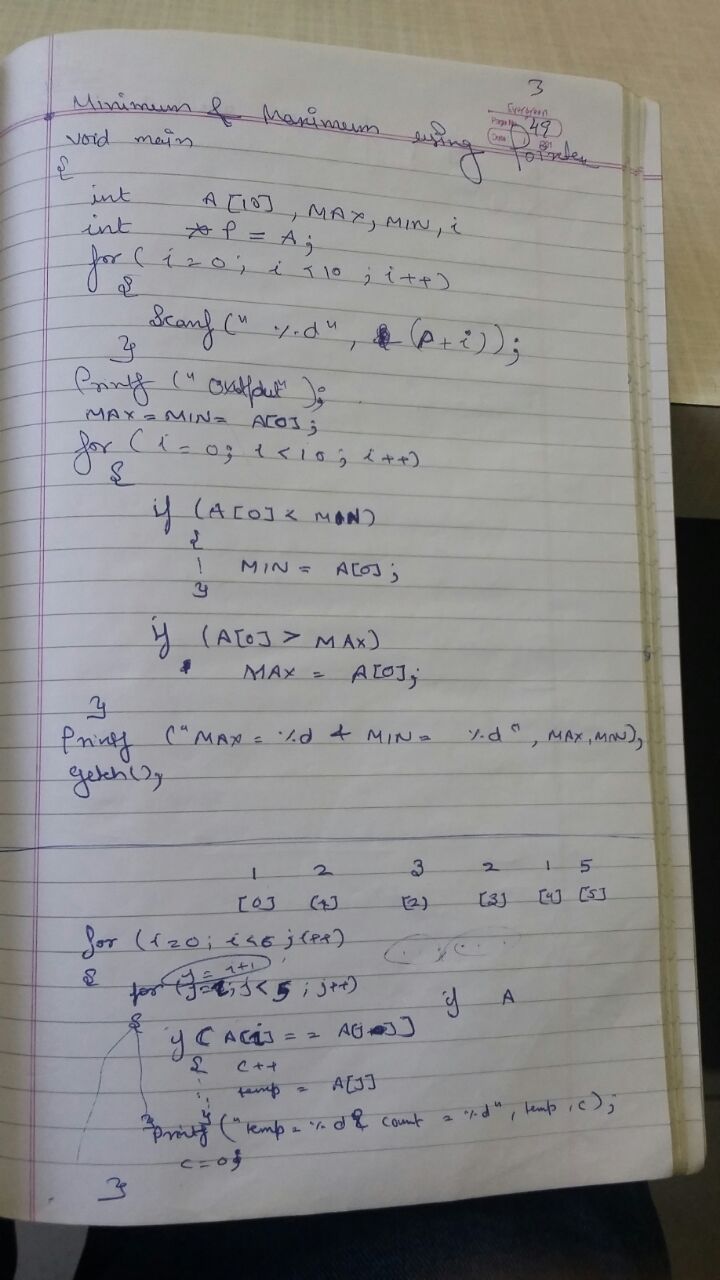 3
Evergreen
Page No. 49
Date
Minimum & Maximum using Pointer
void main
{
int A[10], MAX, MIN, i
int *P = A;
for (i=0; i<10; i++)
{
Scanf("%d", (P+i));
}
Printf ("output");
MAX=MIN= A[0];
for (i=0; i<10; i++)
{
if (A[0]< MIN)
{
MIN = A[0];
}
if (A[0] > MAX)
MAX = A[0];
}
Printf ("MAX = %d & MIN = %d", MAX, MIN);
getch();
1 2 3 2 1 5
[0] [1] [2] [3] [4] [5]
for (i=0; i<6; i++)
j = i+1
{ for (j=i; j<5; j++)
if A
{
if ( A[i] == A[j]]
{ c++
temp = A[j]
}
} printf ("temp = %d & count = %d", temp, c);
c=0;
}